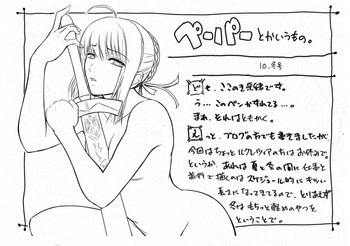 ペーパーとかいうもの。
10.冬号
ども、ここのき奈緒です。
う…このペンかすれてる…。
まぁ、それはともかく。
えっと、ブログの方でも書きましたが
今回はちょっとルクレツィアの方はお休みで。
というか、あれは夏と冬の間に仕事と
並行で描くのはスケジュール的にキツい
長さになってきてるので、とりあえず
冬はもちっと軽めのやつを
ということで。